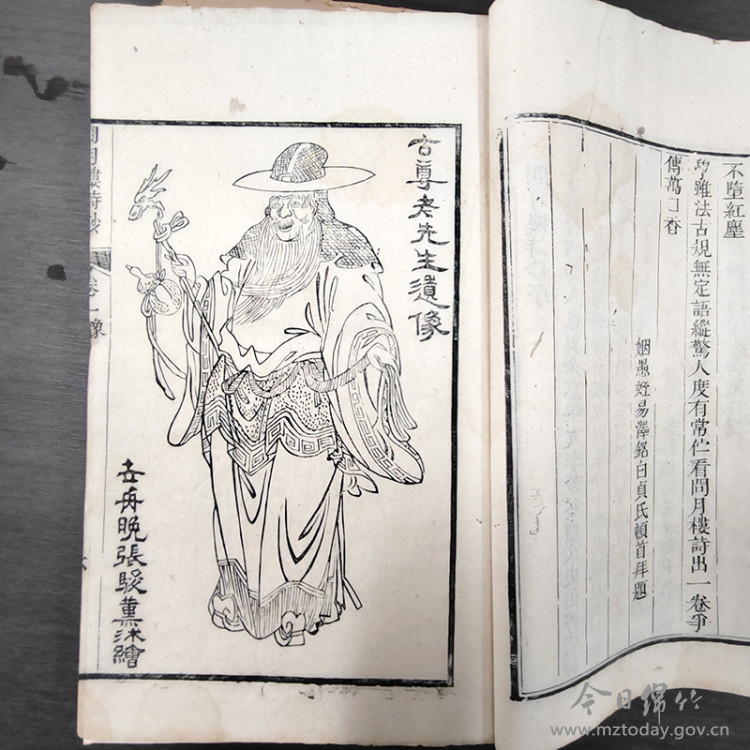 不墮紅塵
學雖法古規無定語縱驚人度有常伫看問月樓詩出一卷爭
傳萬口香
姻愚姪易澤銘白貞氏頓首拜題
古尊老先生遺像
世再晚張駿薰沐繪
問月樓詩鈔
卷一像
今日綿竹
www.mztoday.gov.cn